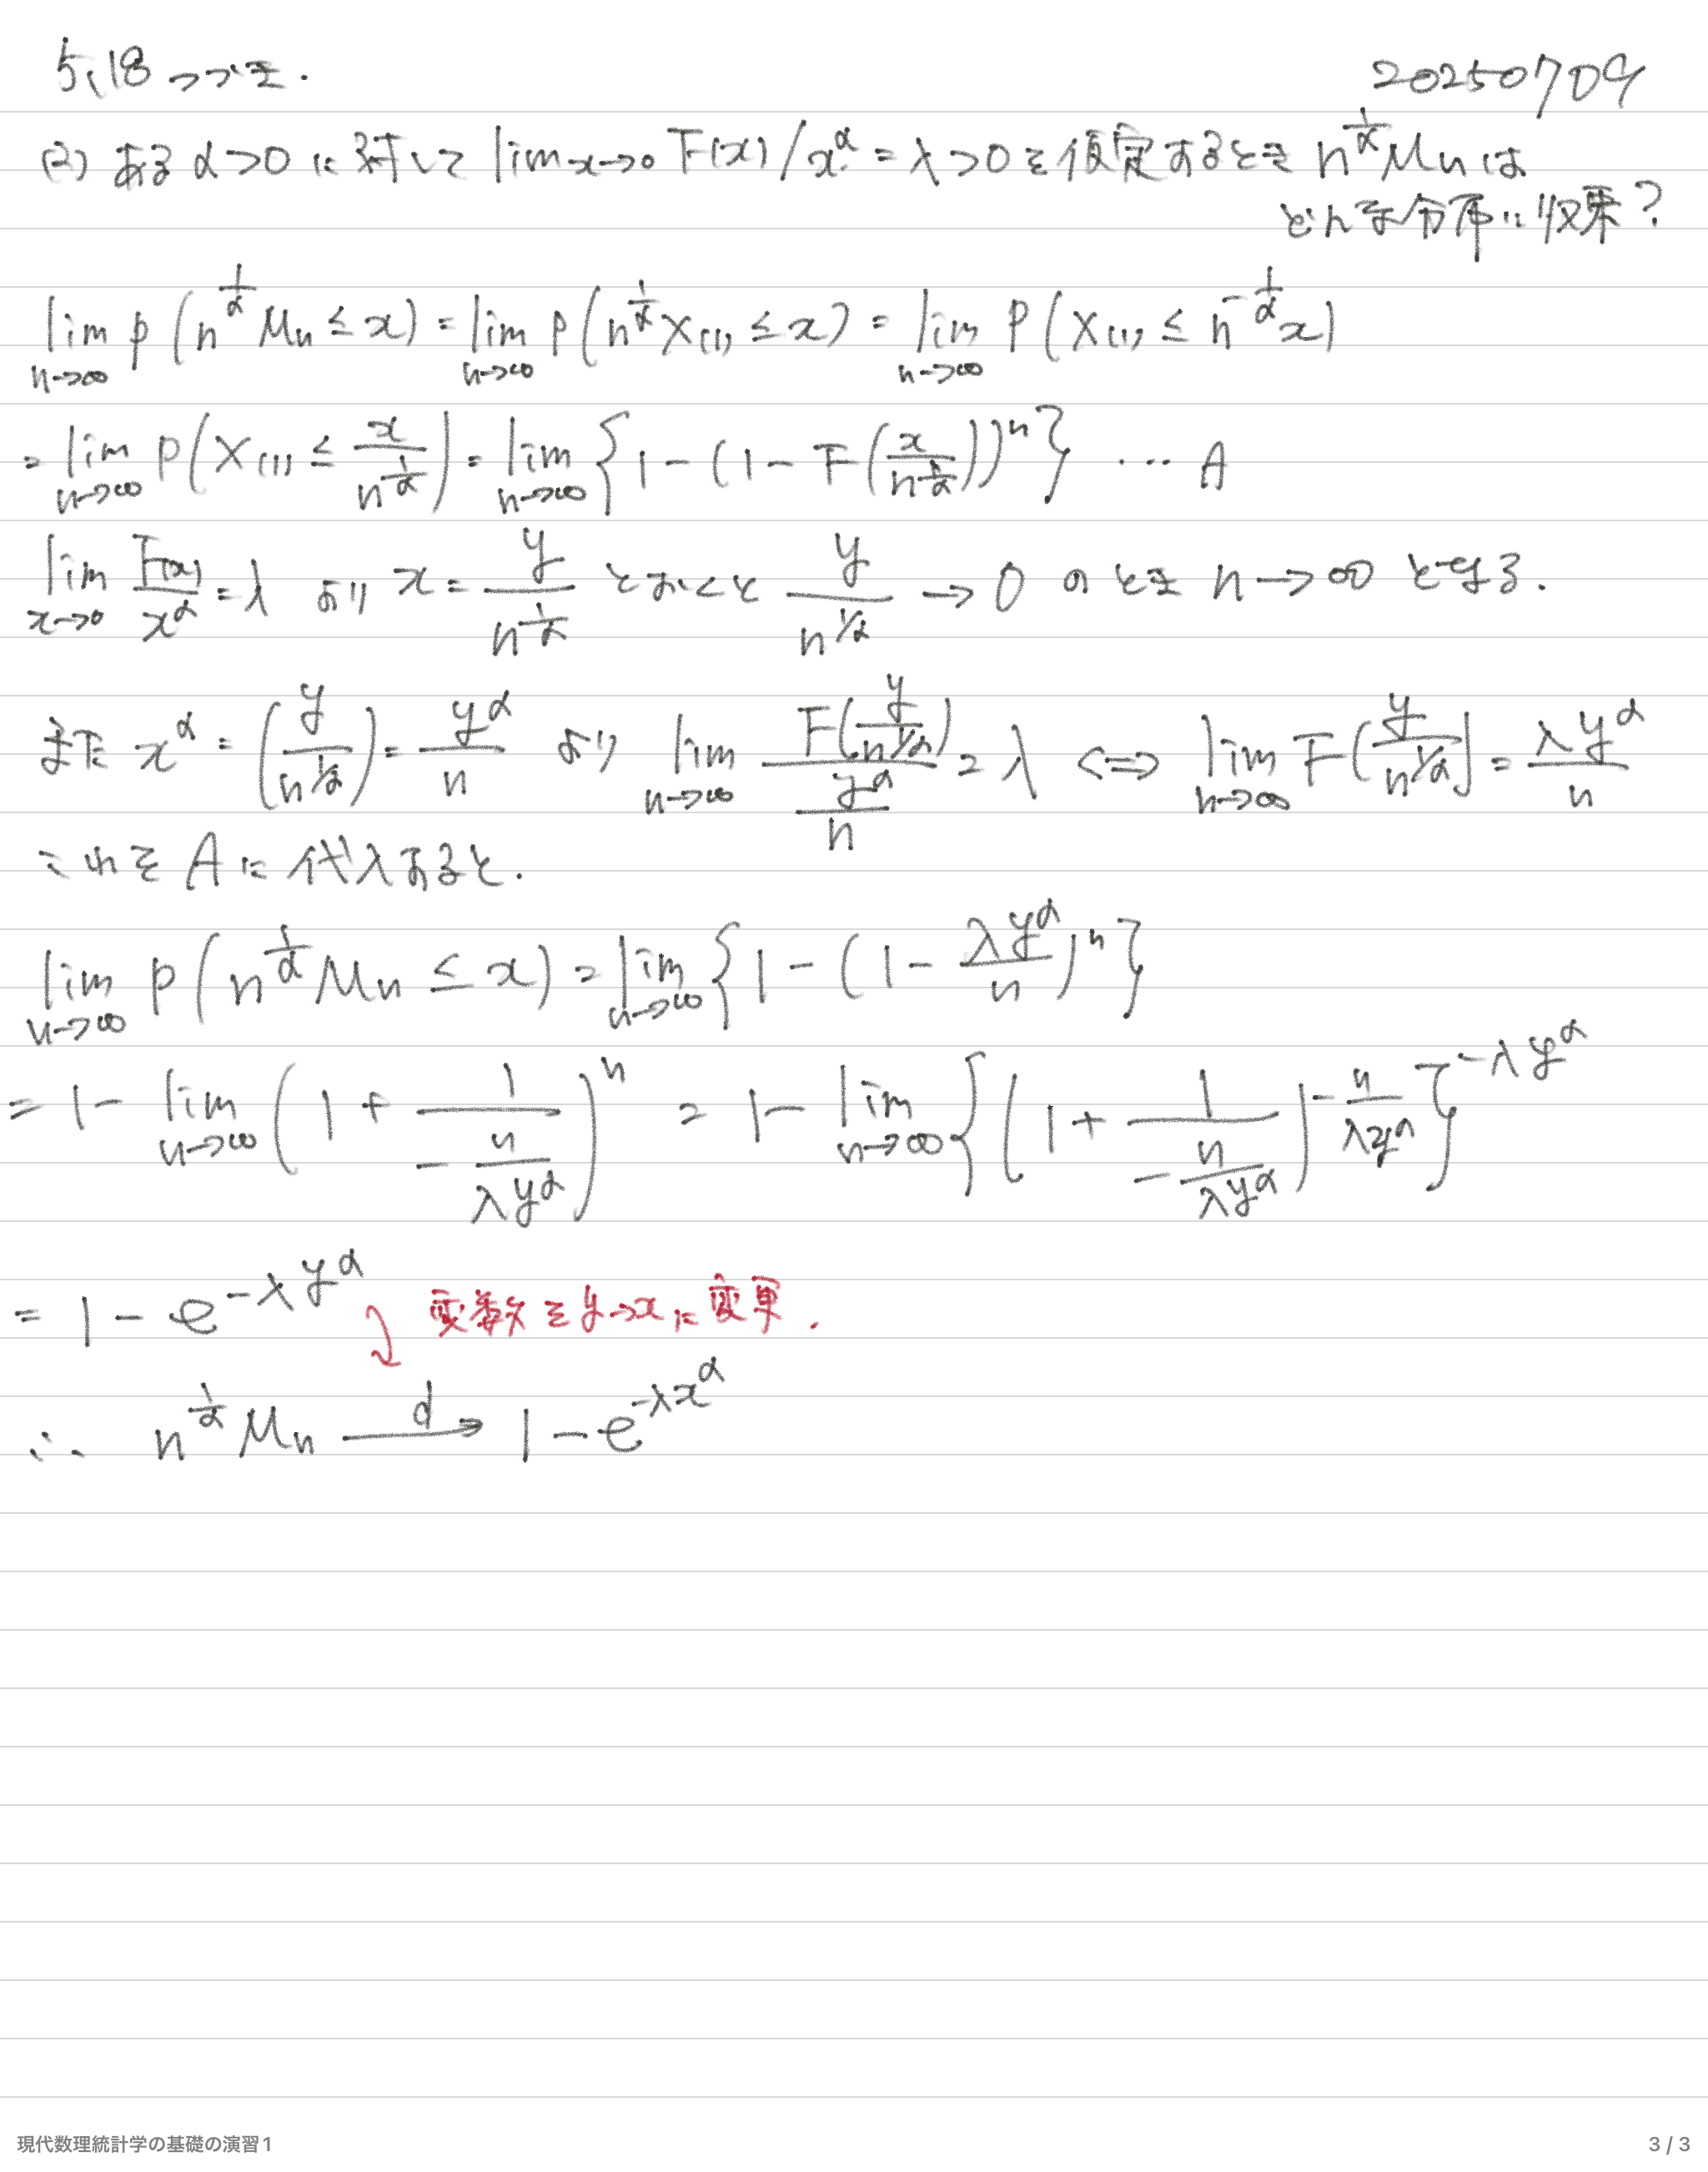 5.18 つづき.
20250709
(2) ある α>0 に対して lim x→0 F(x)/x^α = λ>0 を仮定するとき n^{1/α} Mn は
どんな分布に収束?
lim_{n→∞} P(n^{1/α} Mn ≤ x) = lim_{n→∞} P(n^{1/α} X(1) ≤ x) = lim_{n→∞} P(X(1) ≤ n^{-1/α} x)
= lim_{n→∞} P(X(1) ≤ x/n^{1/α}) = lim_{n→∞} {1-(1-F(x/n^{1/α}))^n} … A
lim_{x→0} F(x)/x^α = λ より x = y/n^{1/α} とおくと y/n^{1/α} → 0 のとき n→∞ となる.
また x^α = (y/n^{1/α}) = y^α/n より lim_{n→∞} F(y/n^{1/α})/(y^α/n) = λ ⟺ lim_{n→∞} F(y/n^{1/α}) = λy^α/n
これを A に代入すると.
lim_{n→∞} P(n^{1/α} Mn ≤ x) = lim_{n→∞} {1-(1-λy^α/n)^n}
= 1- lim_{n→∞} (1+1/(-n/(λy^α)))^n = 1- lim_{n→∞} {(1+1/(-n/(λy^α)))^{-n/(λy^α)}}^{-λy^α}
= 1-e^{-λy^α}
変数を y→x に変更.
∴ n^{1/α} Mn →^d 1-e^{-λx^α}
現代数理統計学の基礎の演習1
3 / 3